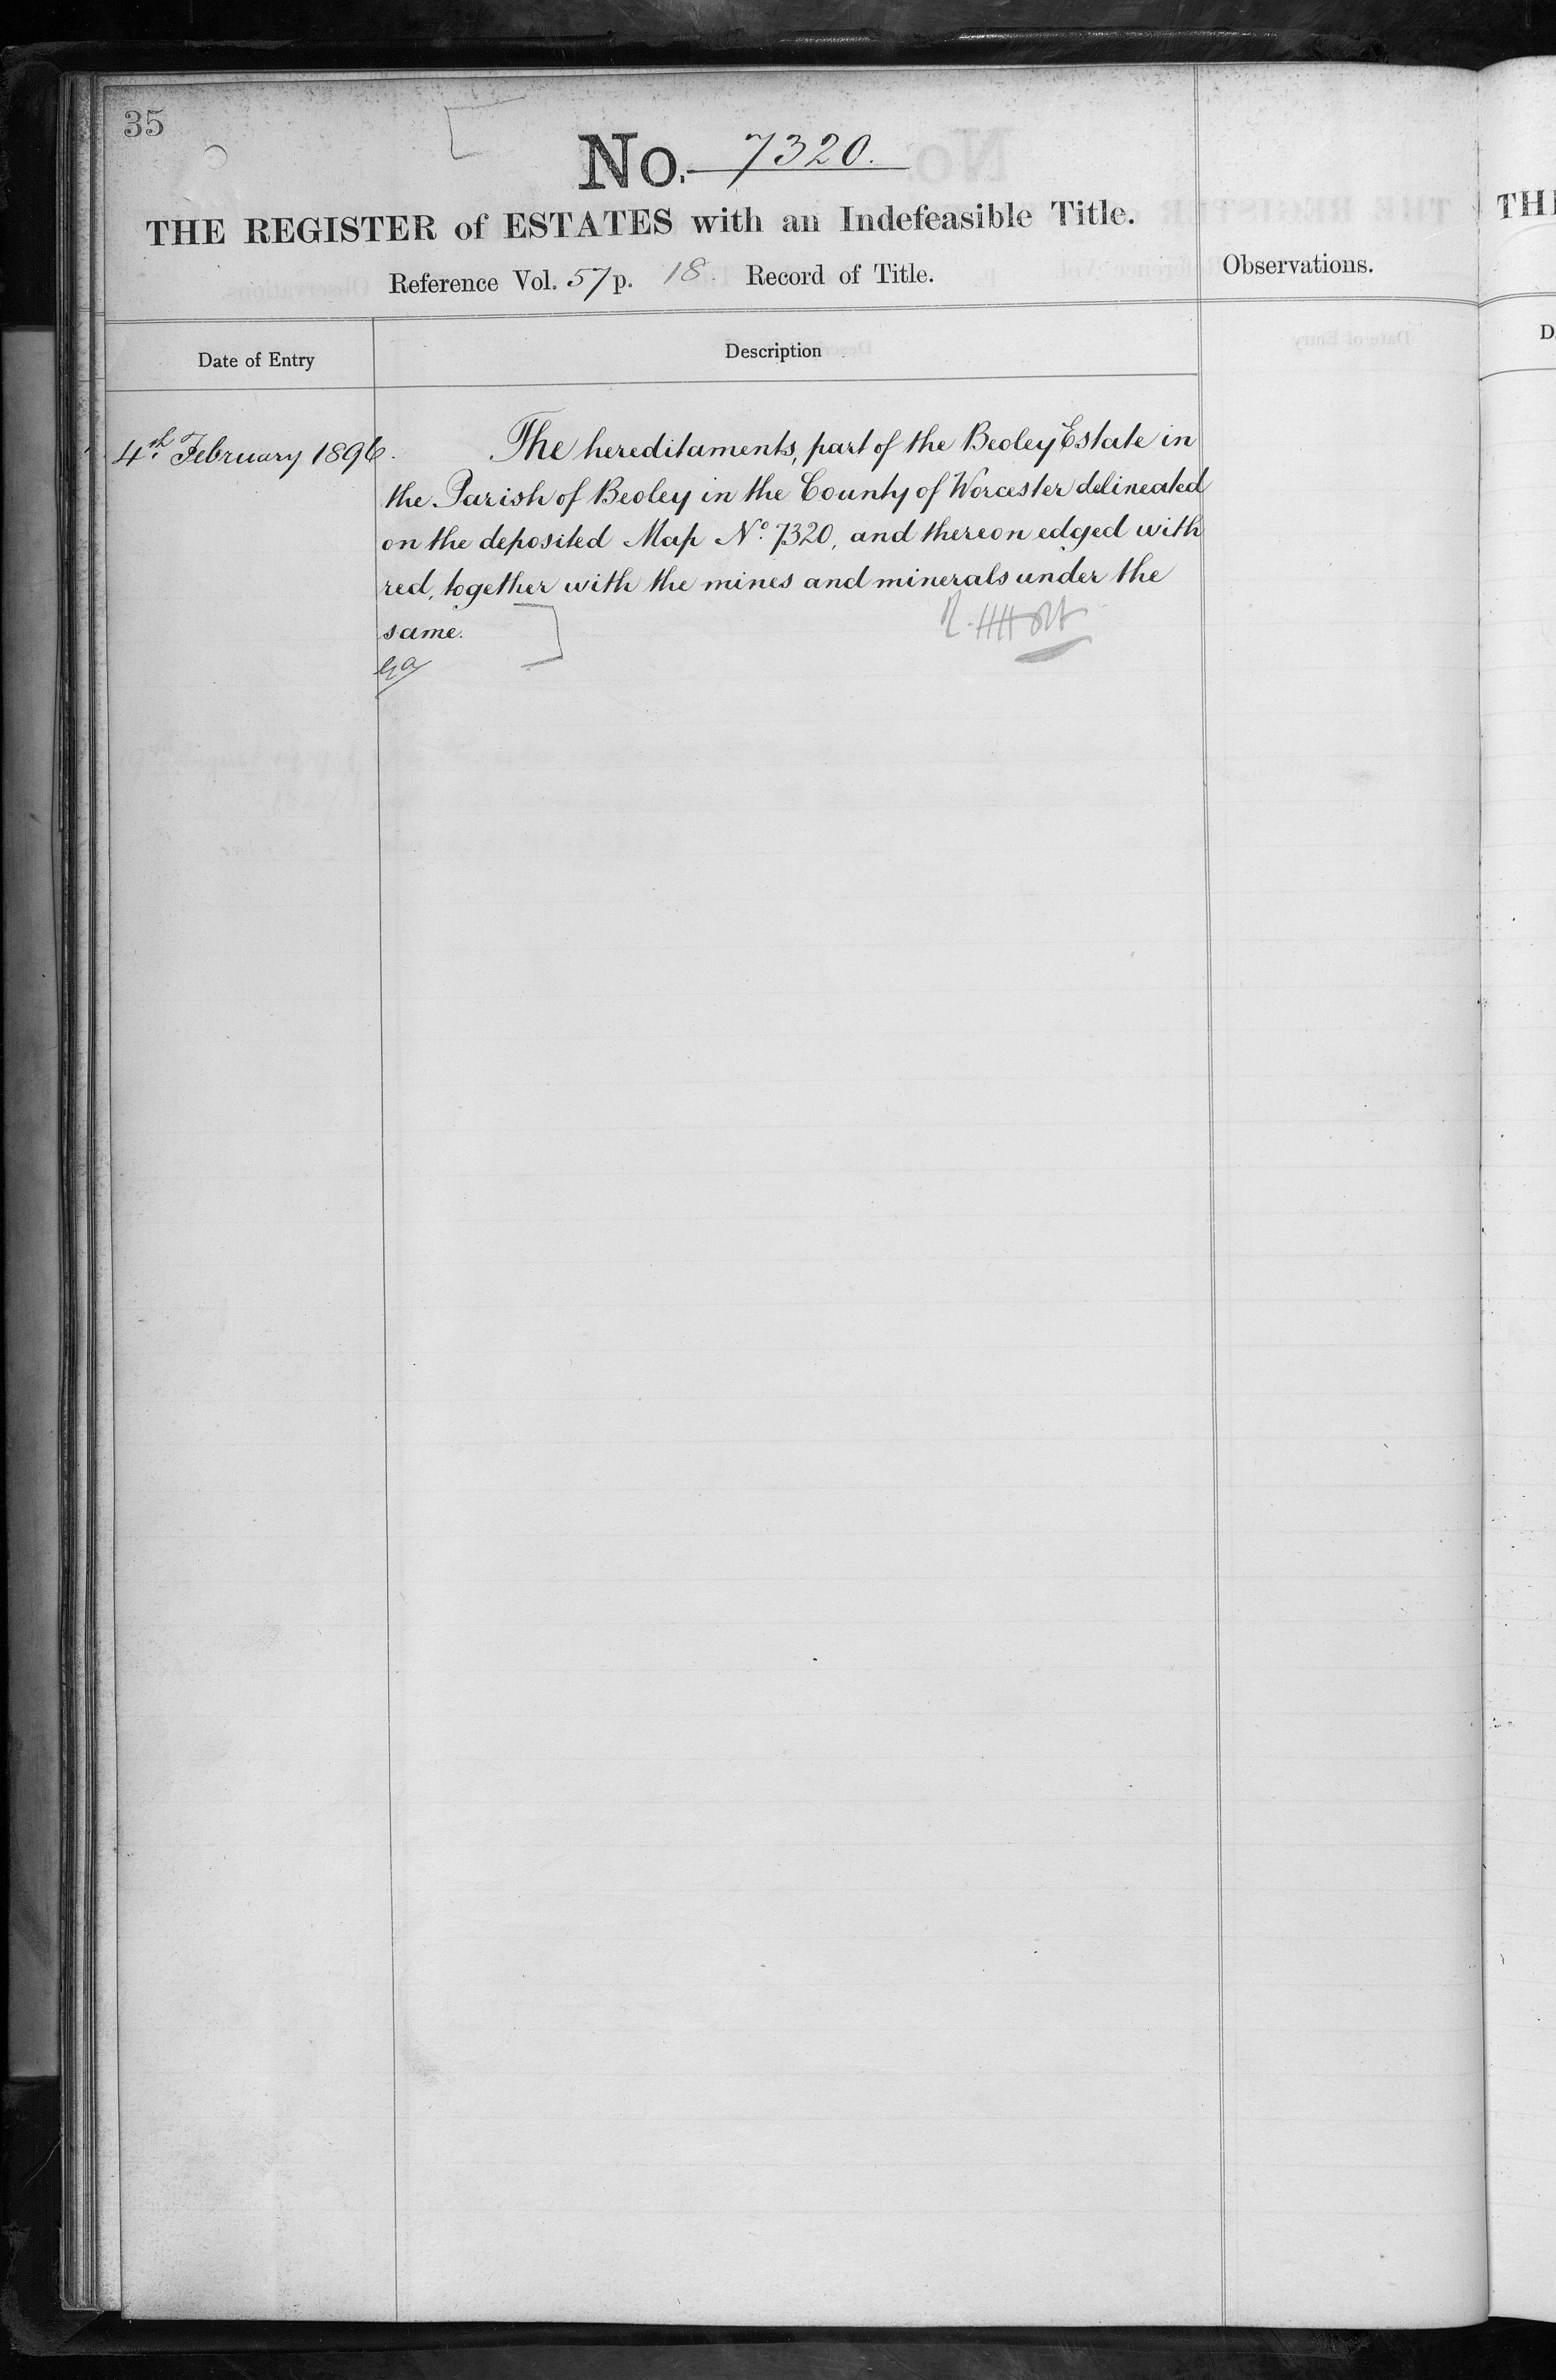 35
No. 7320.
THE REGISTER of ESTATES with an Indefeasible Title.
Reference Vol. 57 p. 18. Record of Title.
Observations.
Date of Entry
Description
4th February 1896.
The hereditaments, part of the Beoley Estate in
the Parish of Beoley in the County of Worcester delineated
on the deposited Map No. 7320, and thereon edged with
red, together with the mines and minerals under the
same.